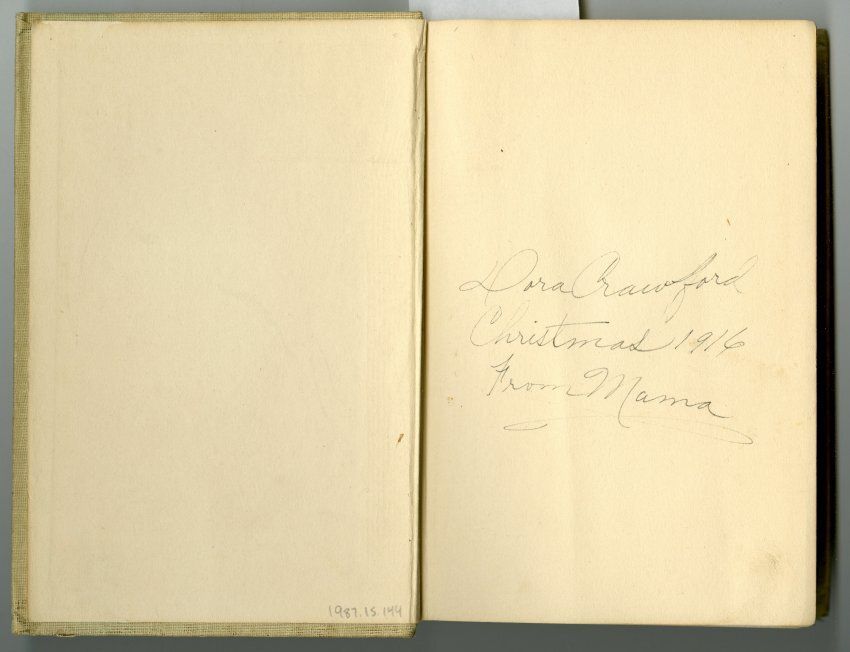 Dora Crawford
Christmas 1916
From Mama
1987.15.144